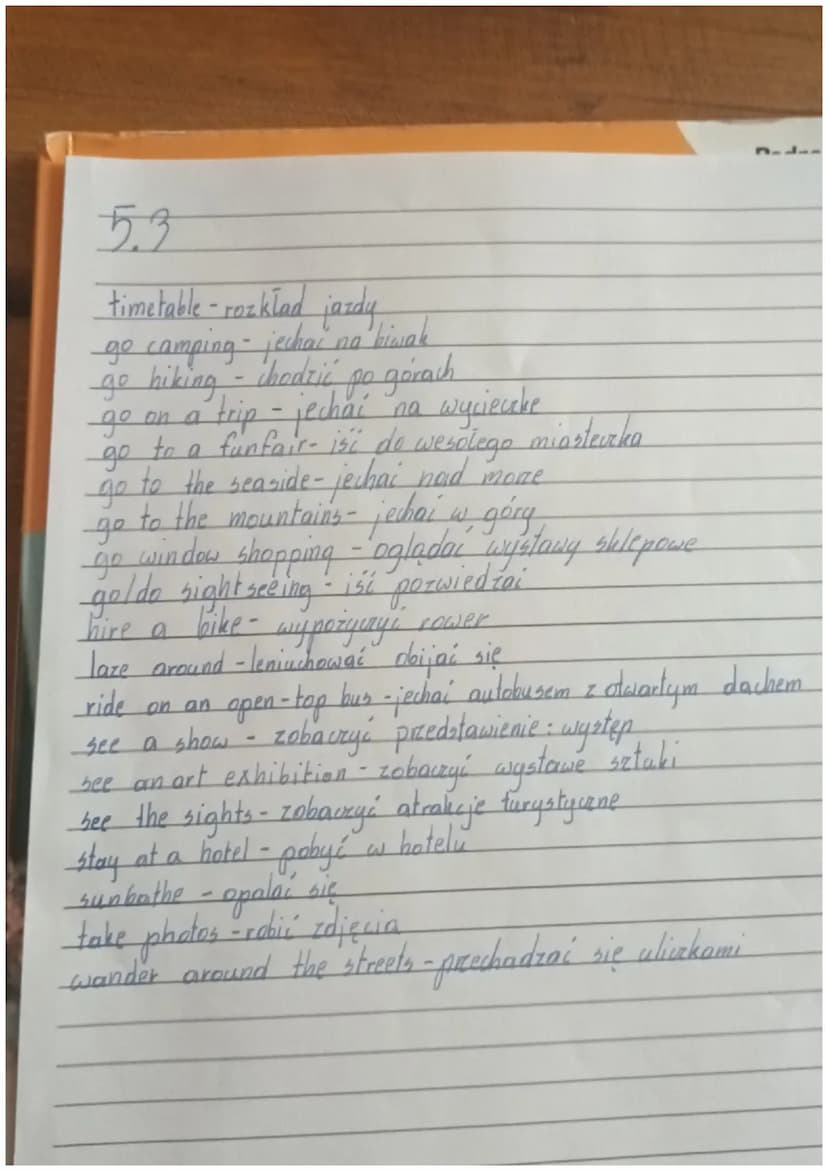 5.3
timetable - rozkład jazdy
go camping - jechać na biwak
go hiking - chodzić po górach
go on a trip - jechać na wycieczke
go to a funfair - iść do wesołego miasteczka
go to the seaside - jechać nad morze
go to the mountains - jechać w góry
go window shopping - oglądać wystawy sklepowe
go/do sightseeing - iść pozwiedzać
hire a bike - wypożyczyć rower
laze around - leniuchować obijać się
ride on an open-top bus - jechać autobusem z otwartym dachem
see a show - zobaczyć przedstawienie: występ
see an art exhibition - zobaczyć wystawe sztuki
see the sights - zobaczyć atrakcje turystyczne
stay at a hotel - pobyć w hotelu
sunbathe - opalać się
take photos - robić zdjęcia
wander around the streets - przechadzać się uliczkami